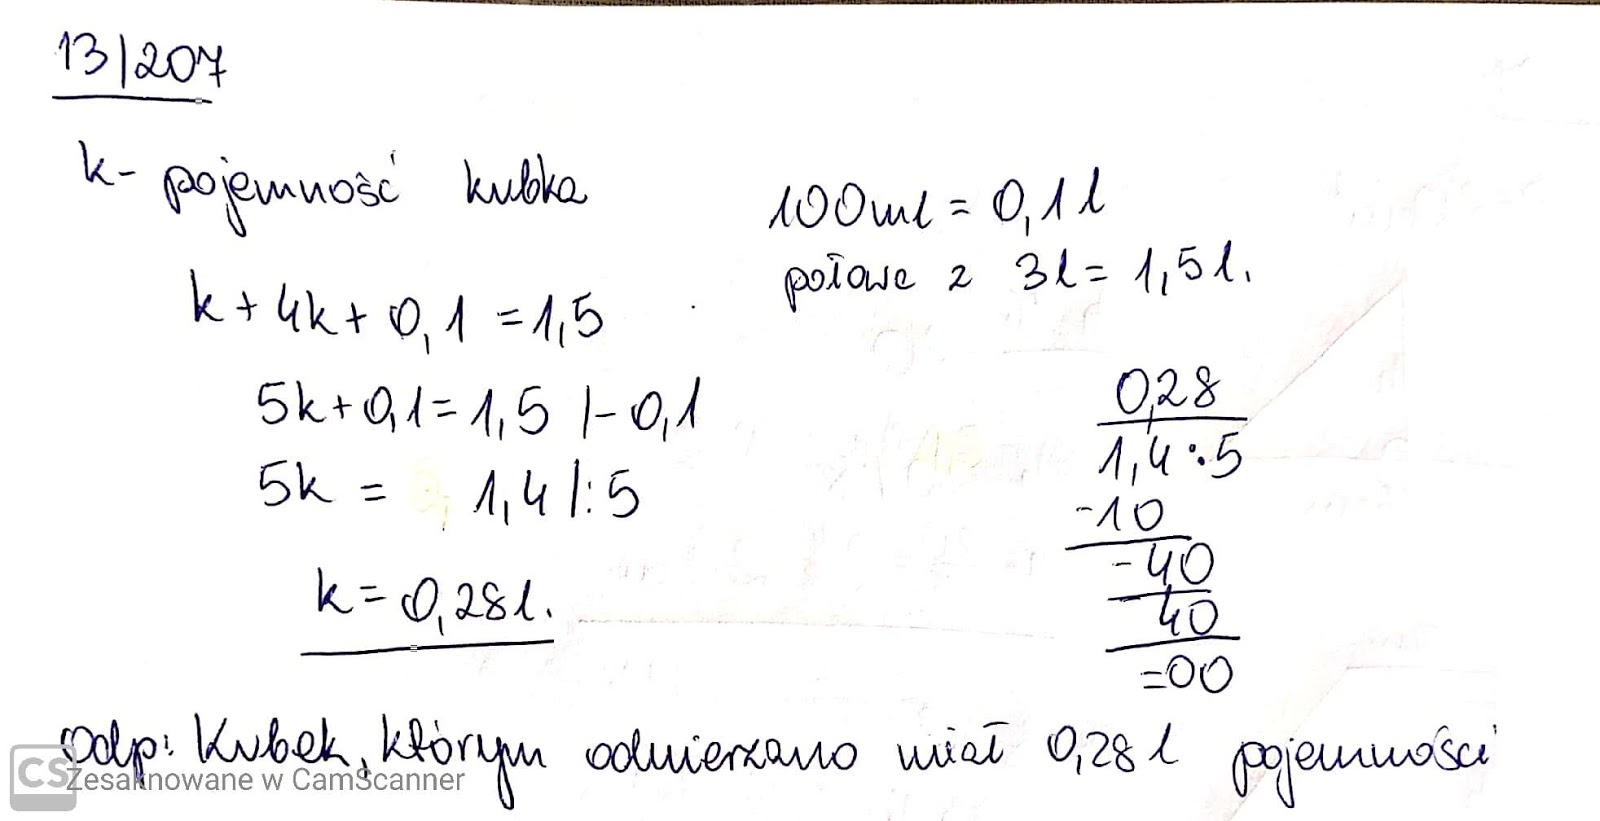 13/207
k- pojemność kubka
100ml = 0,1 l
połowa z 3l = 1,5 l.
k + 4k + 0,1 = 1,5
5k + 0,1 = 1,5 /- 0,1
5k = 1,4 /: 5
k = 0,28 l.
0,28
1,4 : 5
-10
-40
40
=00
Odp: Kubek, którym odmierzano miał 0,28 l pojemności
CS Zesaknowane w CamScanner